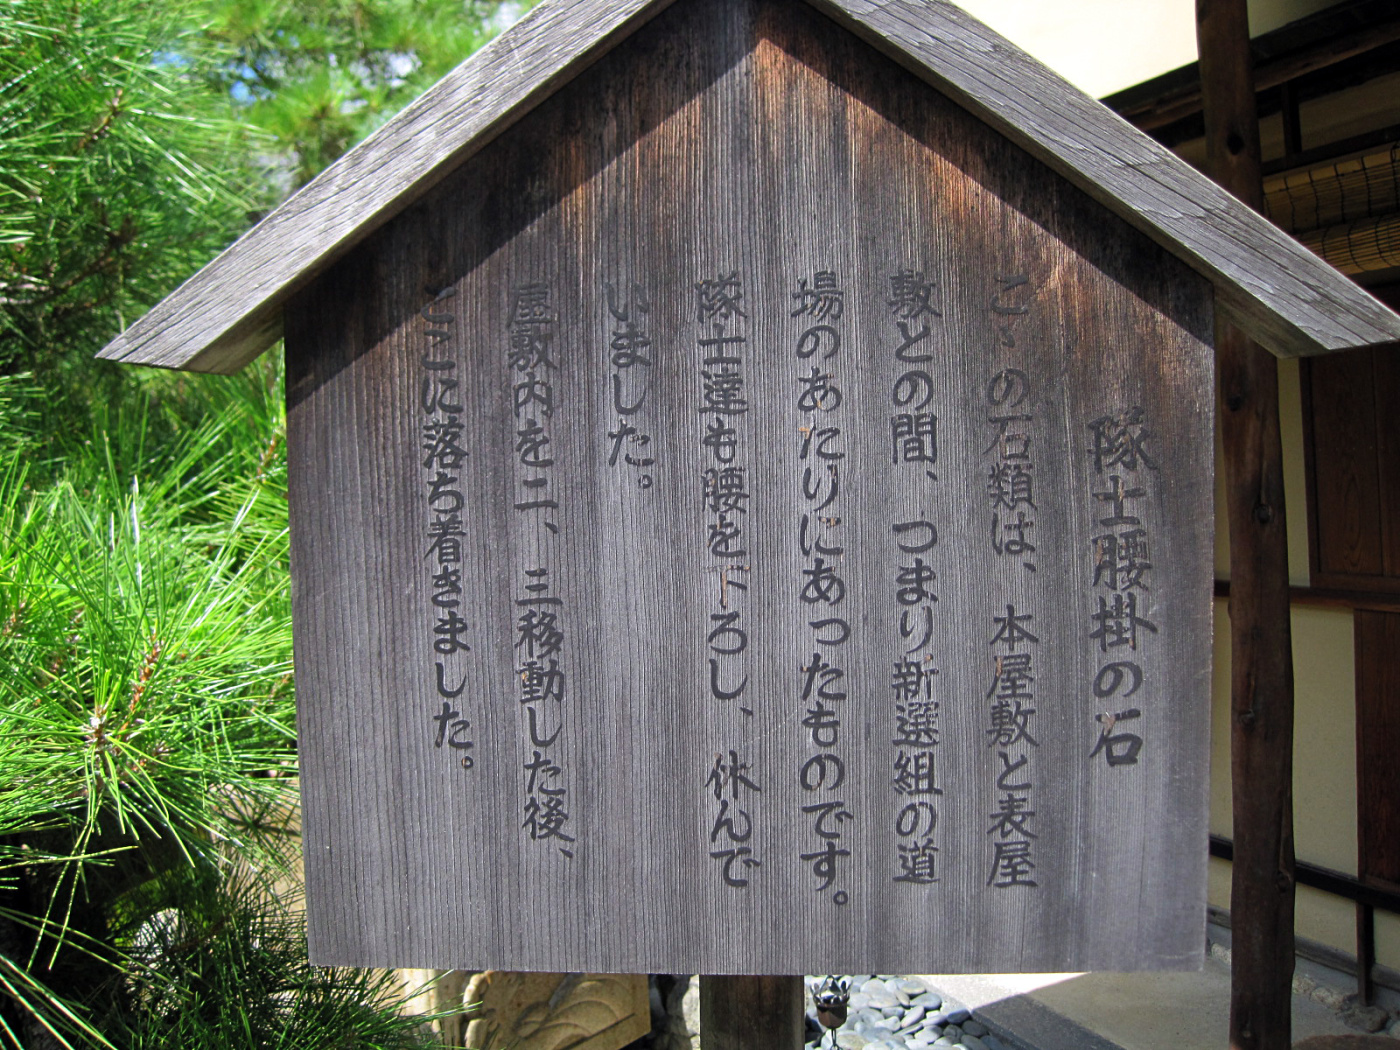 隊士腰掛の石
こゝの石類は、本屋敷と表屋
敷との間、つまり新選組の道
場のあたりにあったものです。
隊士達も腰を下ろし、休んで
いました。
屋敷内を二、三移動した後、
ここに落ち着きました。